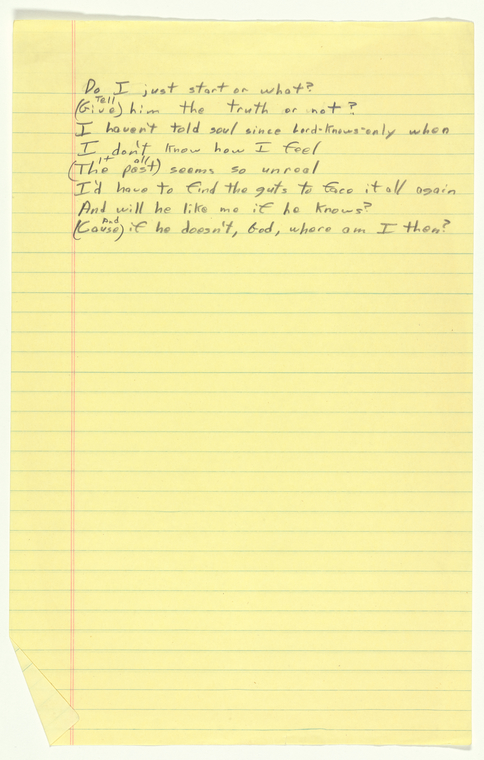 Do I just start or what?
Tell
(Give) him the truth or not?
I haven't told soul since Lord-knows-only when
I don't know how I feel
It all
(The past) seems so unreal
I'd have to find the guts to face it all again
And will he like me if he knows?
And
(Cause) if he doesn't, God, where am I then?